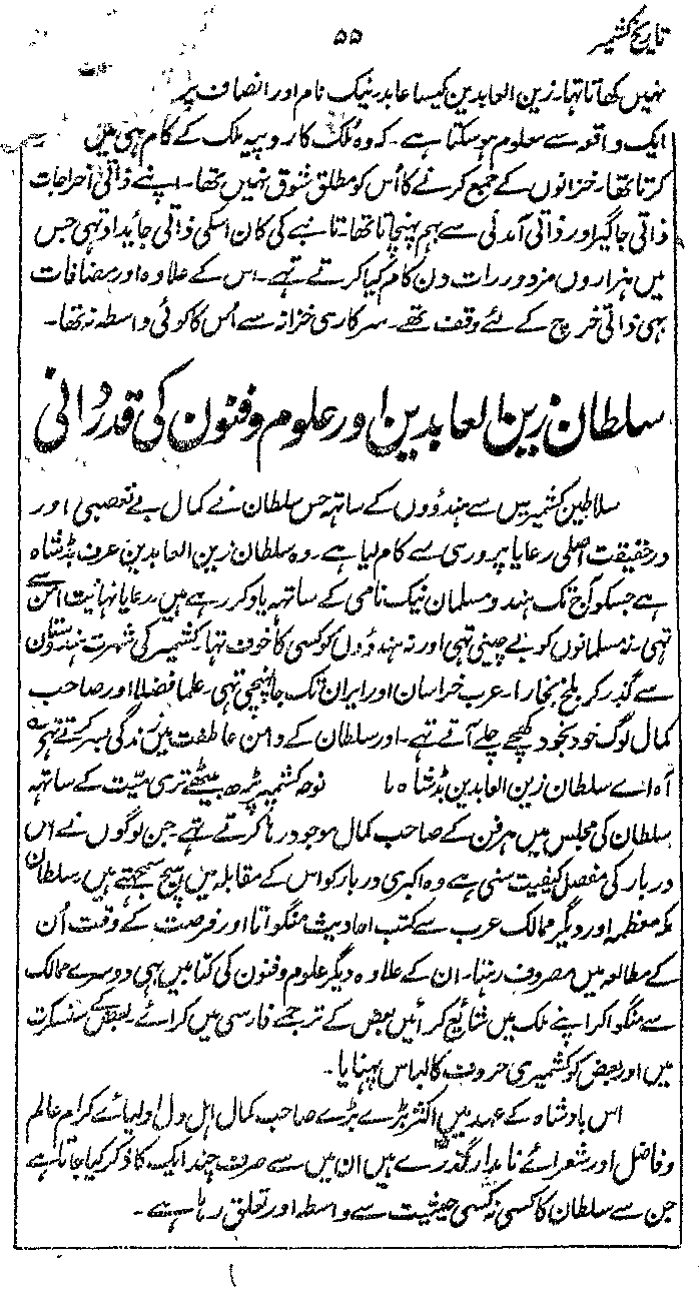 تاریخ کشمیر
۵۵
نہیں کھاتا تھا۔ زین العابدین کیسا عابد نیک نام اور انصاف پر
ایک واقعہ سے معلوم ہو سکتا ہے۔ کہ وہ ملک کا روپیہ ملک کے کام ہی میں
کرتا تھا۔ خزانوں کے جمع کرنے کا اُس کو مطلق شوق نہیں تھا۔ اپنے ذاتی اخراجات
ذاتی جاگیر اور ذاتی آمدنی سے بہم پہنچاتا تھا۔ تانبے کی کان اسکی ذاتی جائیداد تہی جس
میں ہزاروں مزدور رات دن کام کیا کرتے تہے۔ اس کے علاوہ اور مضافات
بہی ذاتی خرچ کے لئے وقف تھے۔ سرکاری خزانہ سے اُس کا کوئی واسطہ نہ تھا۔
سلطان زین العابدین اور علوم و فنون کی قدردانی
سلاطین کشمیر میں سے ہندؤوں کے ساتہہ جس سلطان نے کمال بے تعصبی اور
درحقیقت اصلی رعایا پروری سے کام لیا ہے۔ وہ سلطان زین العابدین عرف بڈشاہ
ہے جسکو آج تک ہندو مسلمان نیک نامی کے ساتہہ یاد کر رہے ہیں۔ رعایا نہایت امن سے
تہی۔ نہ مسلمانوں کو بے چینی تہی اور نہ ہندؤوں کو کسی کا خوف تہا۔ کشمیر کی شہرت ہندوستان
سے گذر کر بلخ بخارا۔ عرب خراسان اور ایران تک جا پہنچی تہی۔ علما فضلا اور صاحب
کمال لوگ خود بخود کھچے چلے آتے تہے۔ اور سلطان کے دامن عاطفت میں زندگی بسر کرتے تہے
آہ اے سلطان زین العابدین بڈشاہ ما نوحہ کشمیر پڑھ بیٹھے تری میت کے ساتہہ
سلطان کی مجلس میں ہر فن کے صاحب کمال موجود رہا کرتے تہے۔ جن لوگوں نے اس
دربار کی مفصل کیفیت سنی ہے وہ اکبری دربار کو اس کے مقابلہ میں ہیچ سمجہتے ہیں۔ سلطان
مکہ معظمہ اور دیگر ممالک عرب سے کتب احادیث منگواتا اور فرصت کے وقت اُن
کے مطالعہ میں مصروف رہتا۔ ان کے علاوہ دیگر علوم و فنون کی کتابیں بہی دوسرے ممالک
سے منگوا کر اپنے ملک میں شائع کرائیں بعض کے ترجمے فارسی میں کرائے۔ بعض کے سنسکرت
میں اور بعض کو کشمیری حروف کا لباس پہنایا۔
اس بادشاہ کے عہد میں اکثر بڑے بڑے صاحب کمال اہل دل اولیائے کرام عالم
و فاضل اور شعرائے نامدار گذرے ہیں ان میں سے صرف چند ایک کا ذکر کیا جاتا ہے
جن سے سلطان کا کسی نہ کسی حیثیت سے واسطہ اور تعلق رہا ہے۔